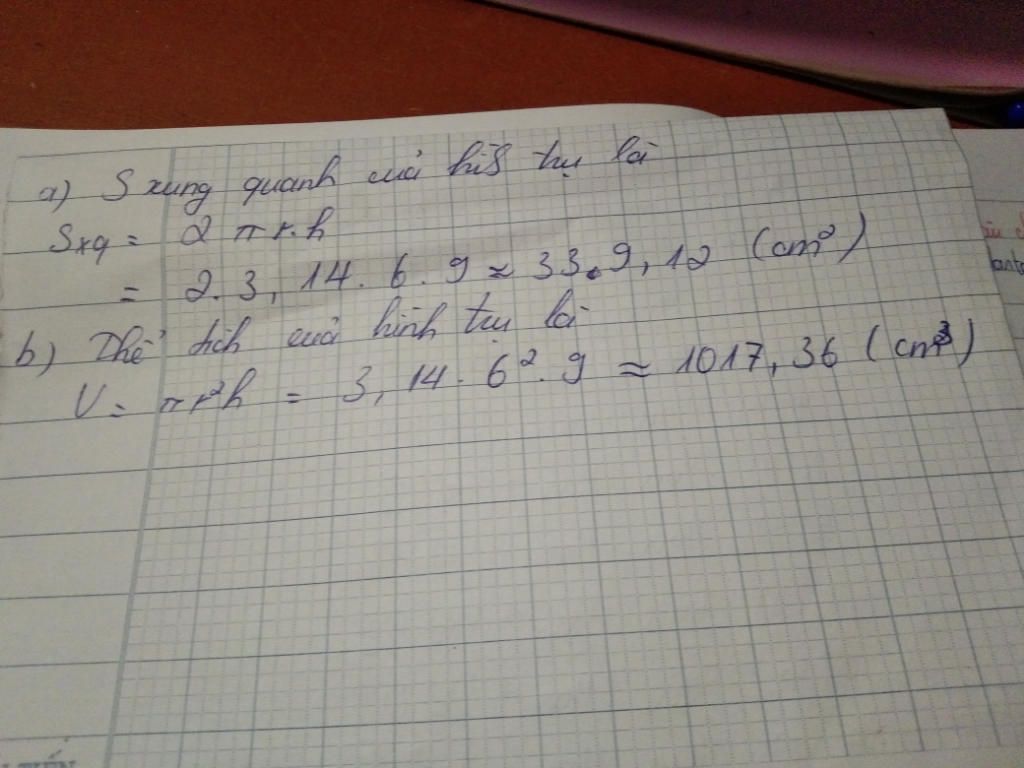 a) S xung quanh của hìh trụ là
Sxq = 2 π r.h
= 2.3,14.6.9 ≈ 33.9,12 (cm²)
b) Thể tích của hình trụ là
V = πr²h = 3,14.6².9 ≈ 1017,36 (cm³)